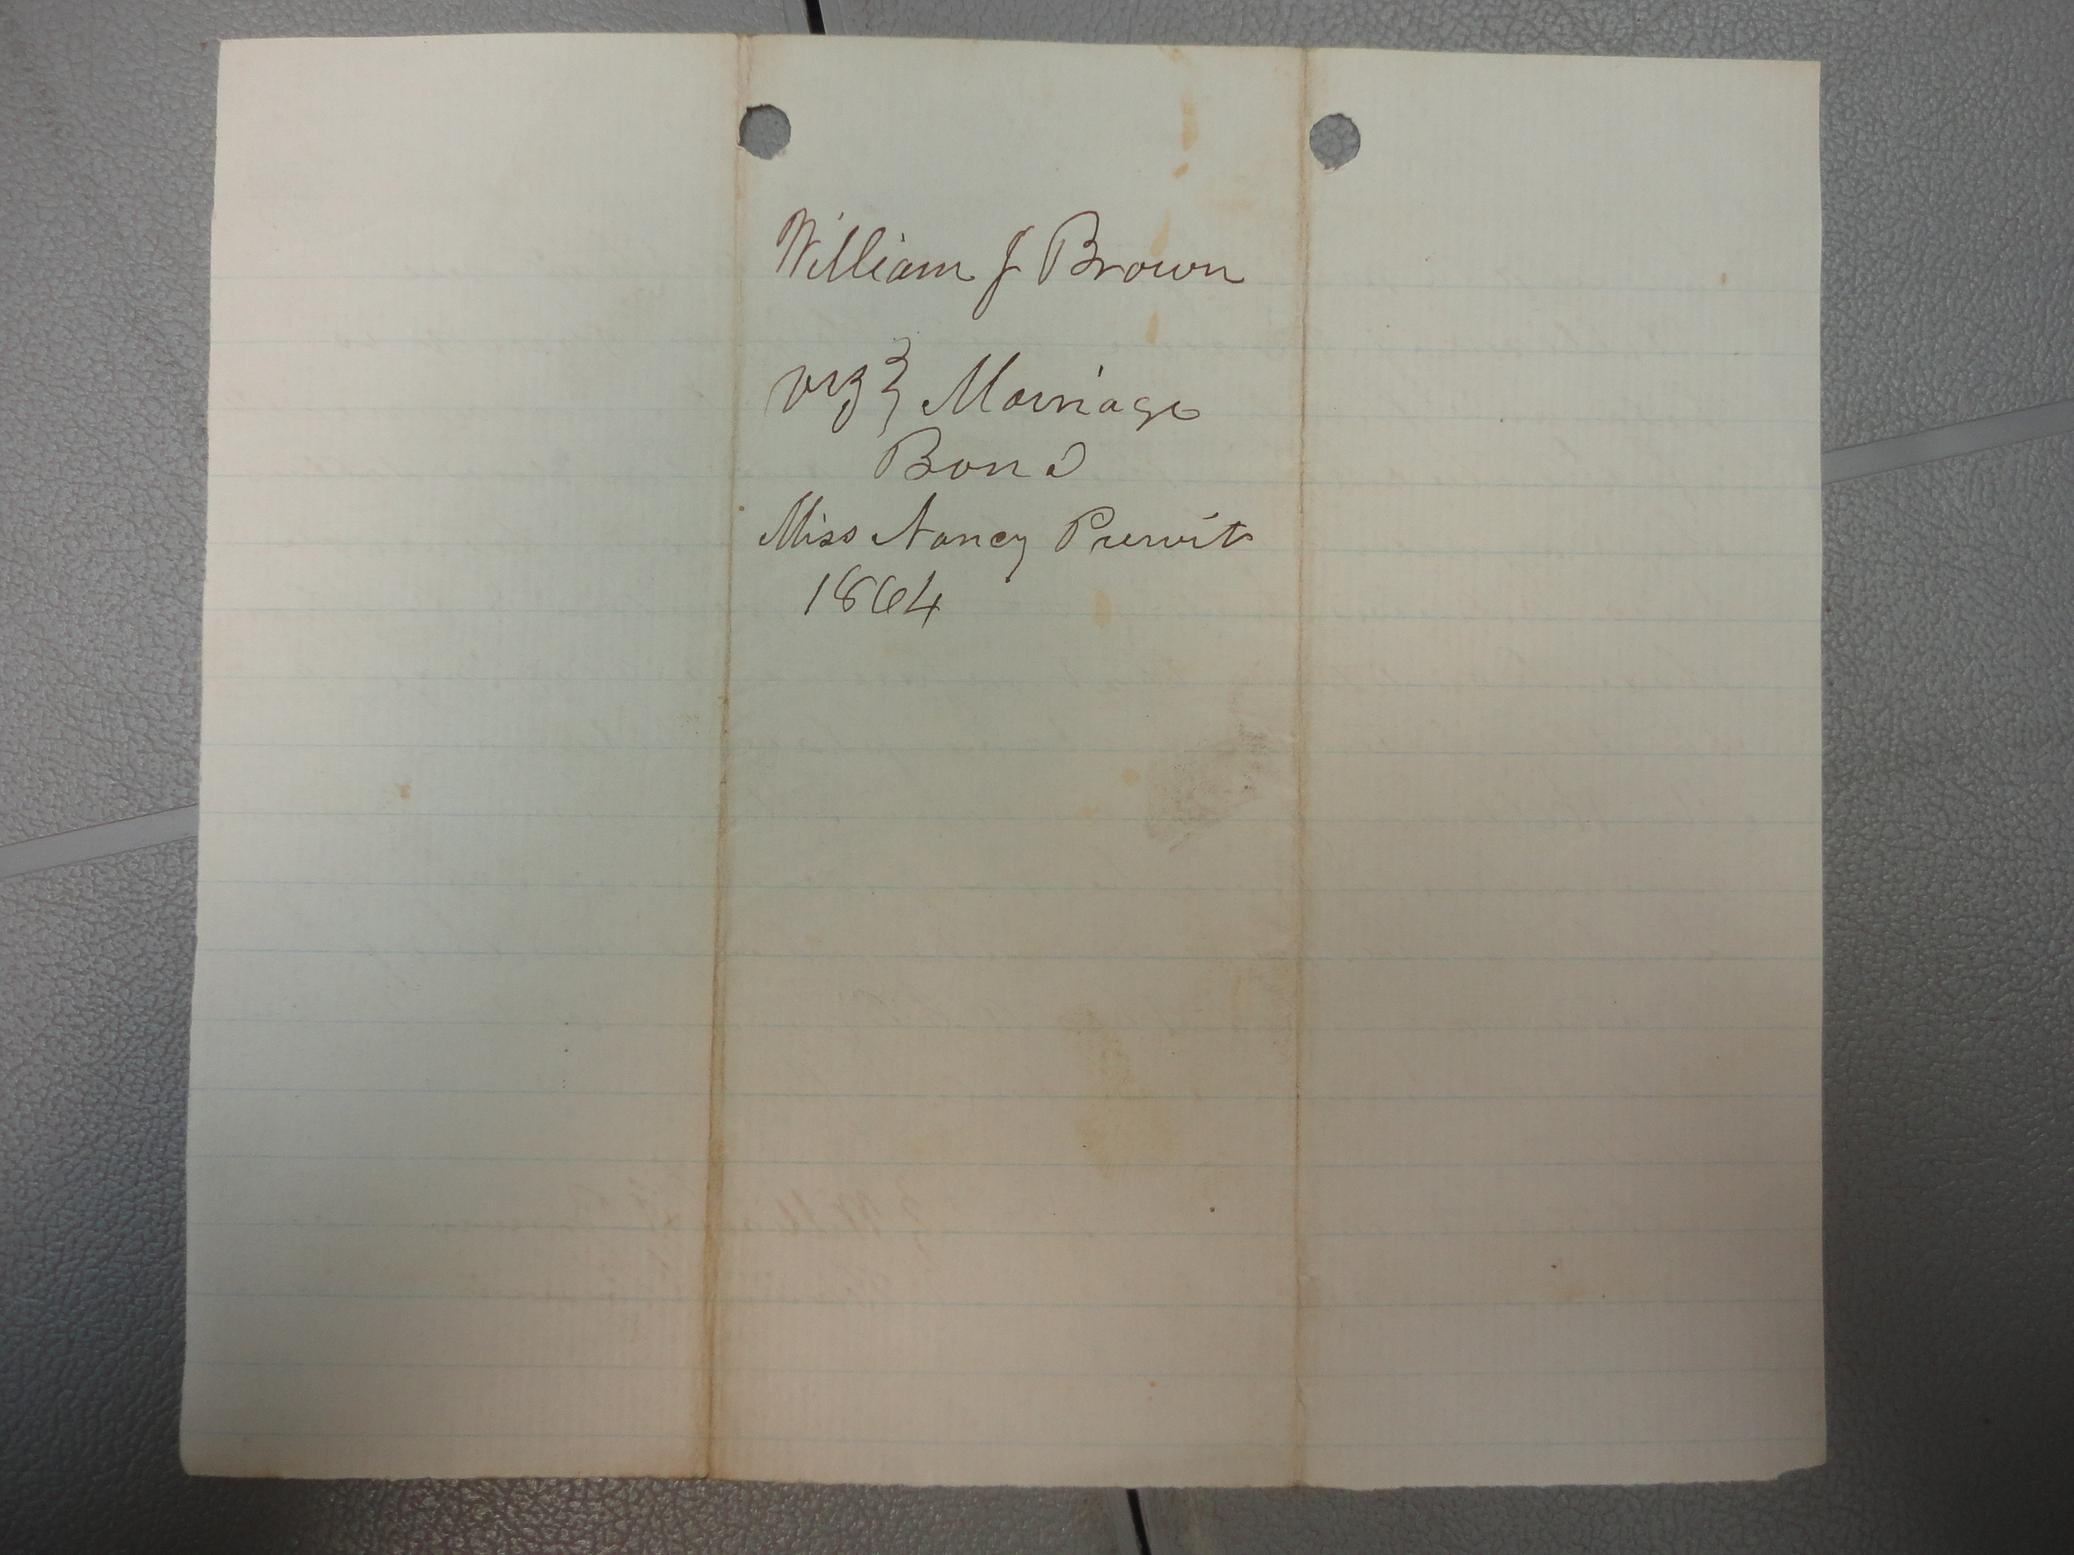 William J Brown
vs } Marriage
Bond
Miss Nancy Prewit
1864